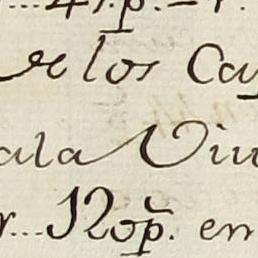 de los Ca
ala Viu
120 p. en